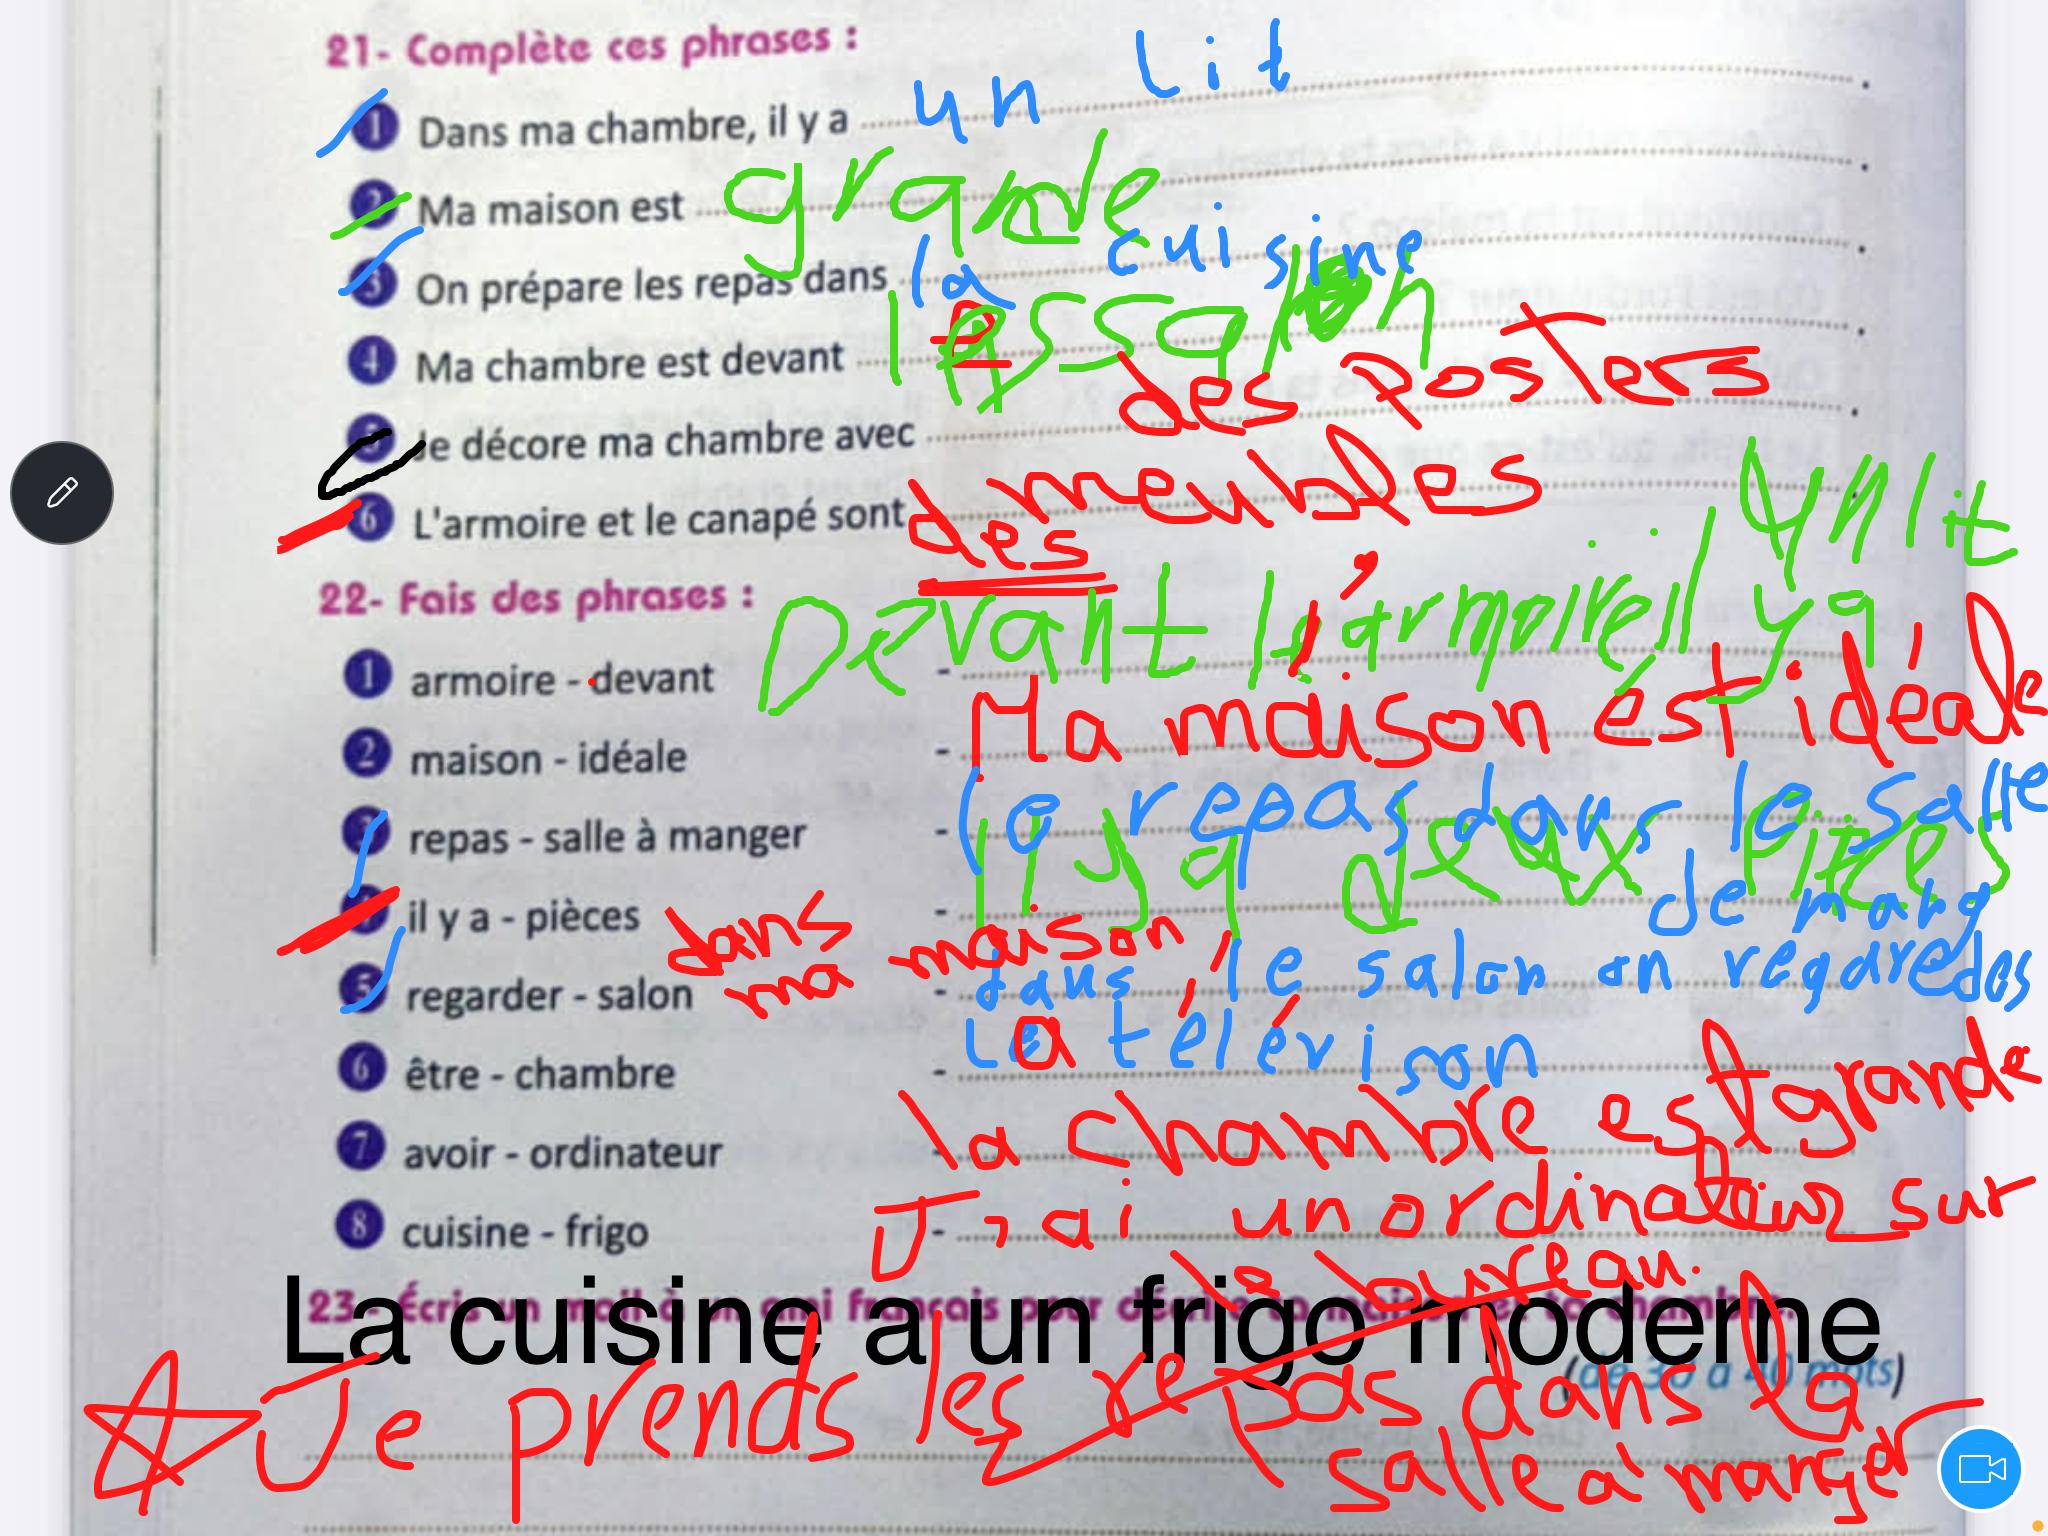 21- Complète ces phrases :
1 Dans ma chambre, il y a un lit
2 Ma maison est grande
3 On prépare les repas dans la cuisine
4 Ma chambre est devant le salon
5 Je décore ma chambre avec des posters
6 L'armoire et le canapé sont des meubles
22- Fais des phrases :
un lit
1 armoire - devant - Devant l'armoire il y a
2 maison - idéale - Ma maison est idéale
3 repas - salle à manger - Le repas dans le salle
de mang
4 il y a - pièces - Il y a deux pièces
dans ma maison
5 regarder - salon - dans le salon on regardes
la télévison
6 être - chambre - la chambre est grande
7 avoir - ordinateur - J'ai un ordinateur sur
le bureau.
8 cuisine - frigo -
La cuisine a un frigo moderne
23- Écris un mail à un ami français pour décrire ta maison et ta chambre.
(de 30 à 40 mots)
Je prends les repas dans la
salle à manger